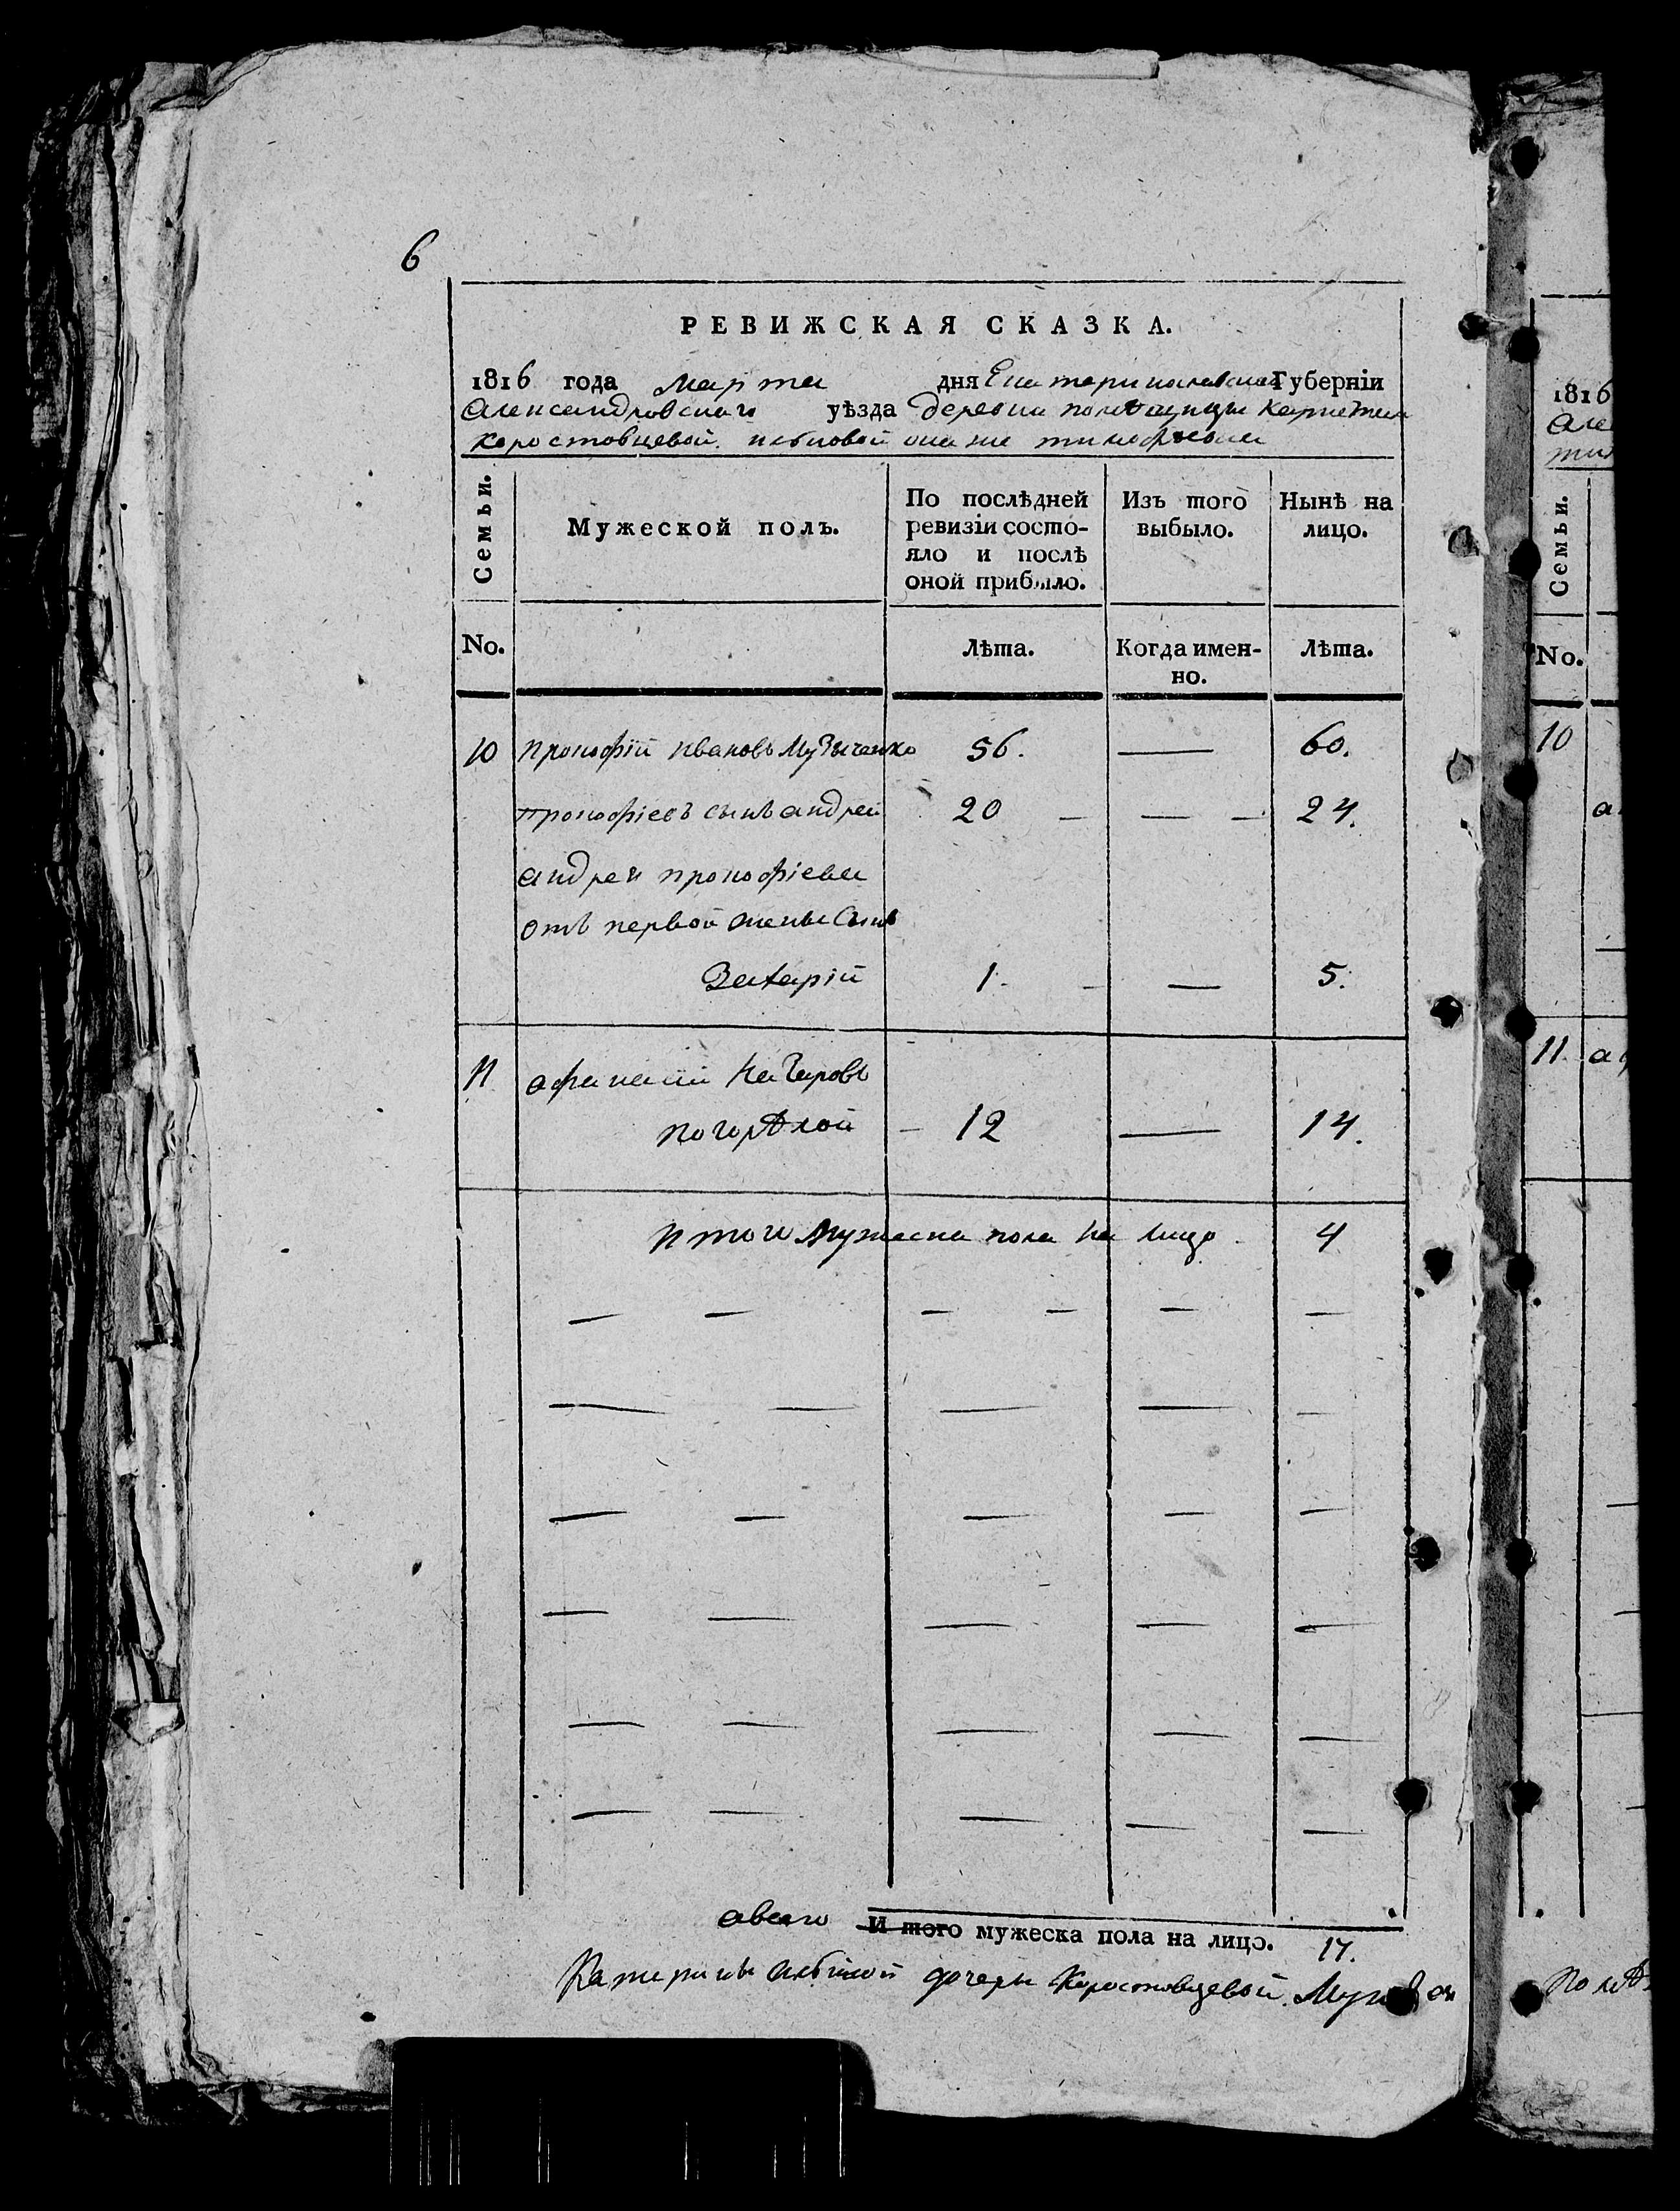 6
РЕВИЖСКАЯ СКАЗКА.
1816 года марта дня Екатеринославской Губерніи
Александровского уѣзда деревни помѣщицы
Коростовцевой
Семьи. Мужеской полъ. По послѣдней ревизіи состояло и послѣ оной прибыло. Изъ того выбыло. Ныне на лицо.
No. Лѣта. Когда именно. Лѣта.
10 прокофій ивановъ Музыченко 56. — 60.
прокофіевъ сынъ андрей 20 — — — 24.
андрея прокофіева
отъ первой жены сынъ
Захарій 1. — — 5.
11 афанасій Назаровъ
погорѣлой — 12 — 14.
итого мужеска пола на лицо 4
авсего И того мужеска пола на лицо. 17.
дочери Коростовцевой
1816
Семьи.
No.
10
11